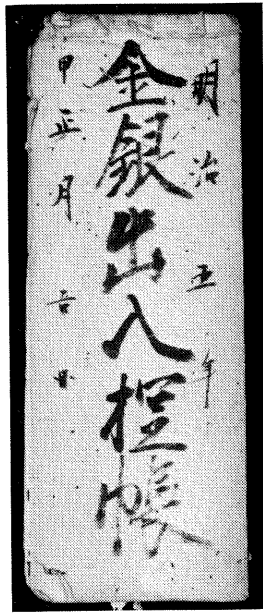 明治五年
金銀出入控帳
申正月吉日